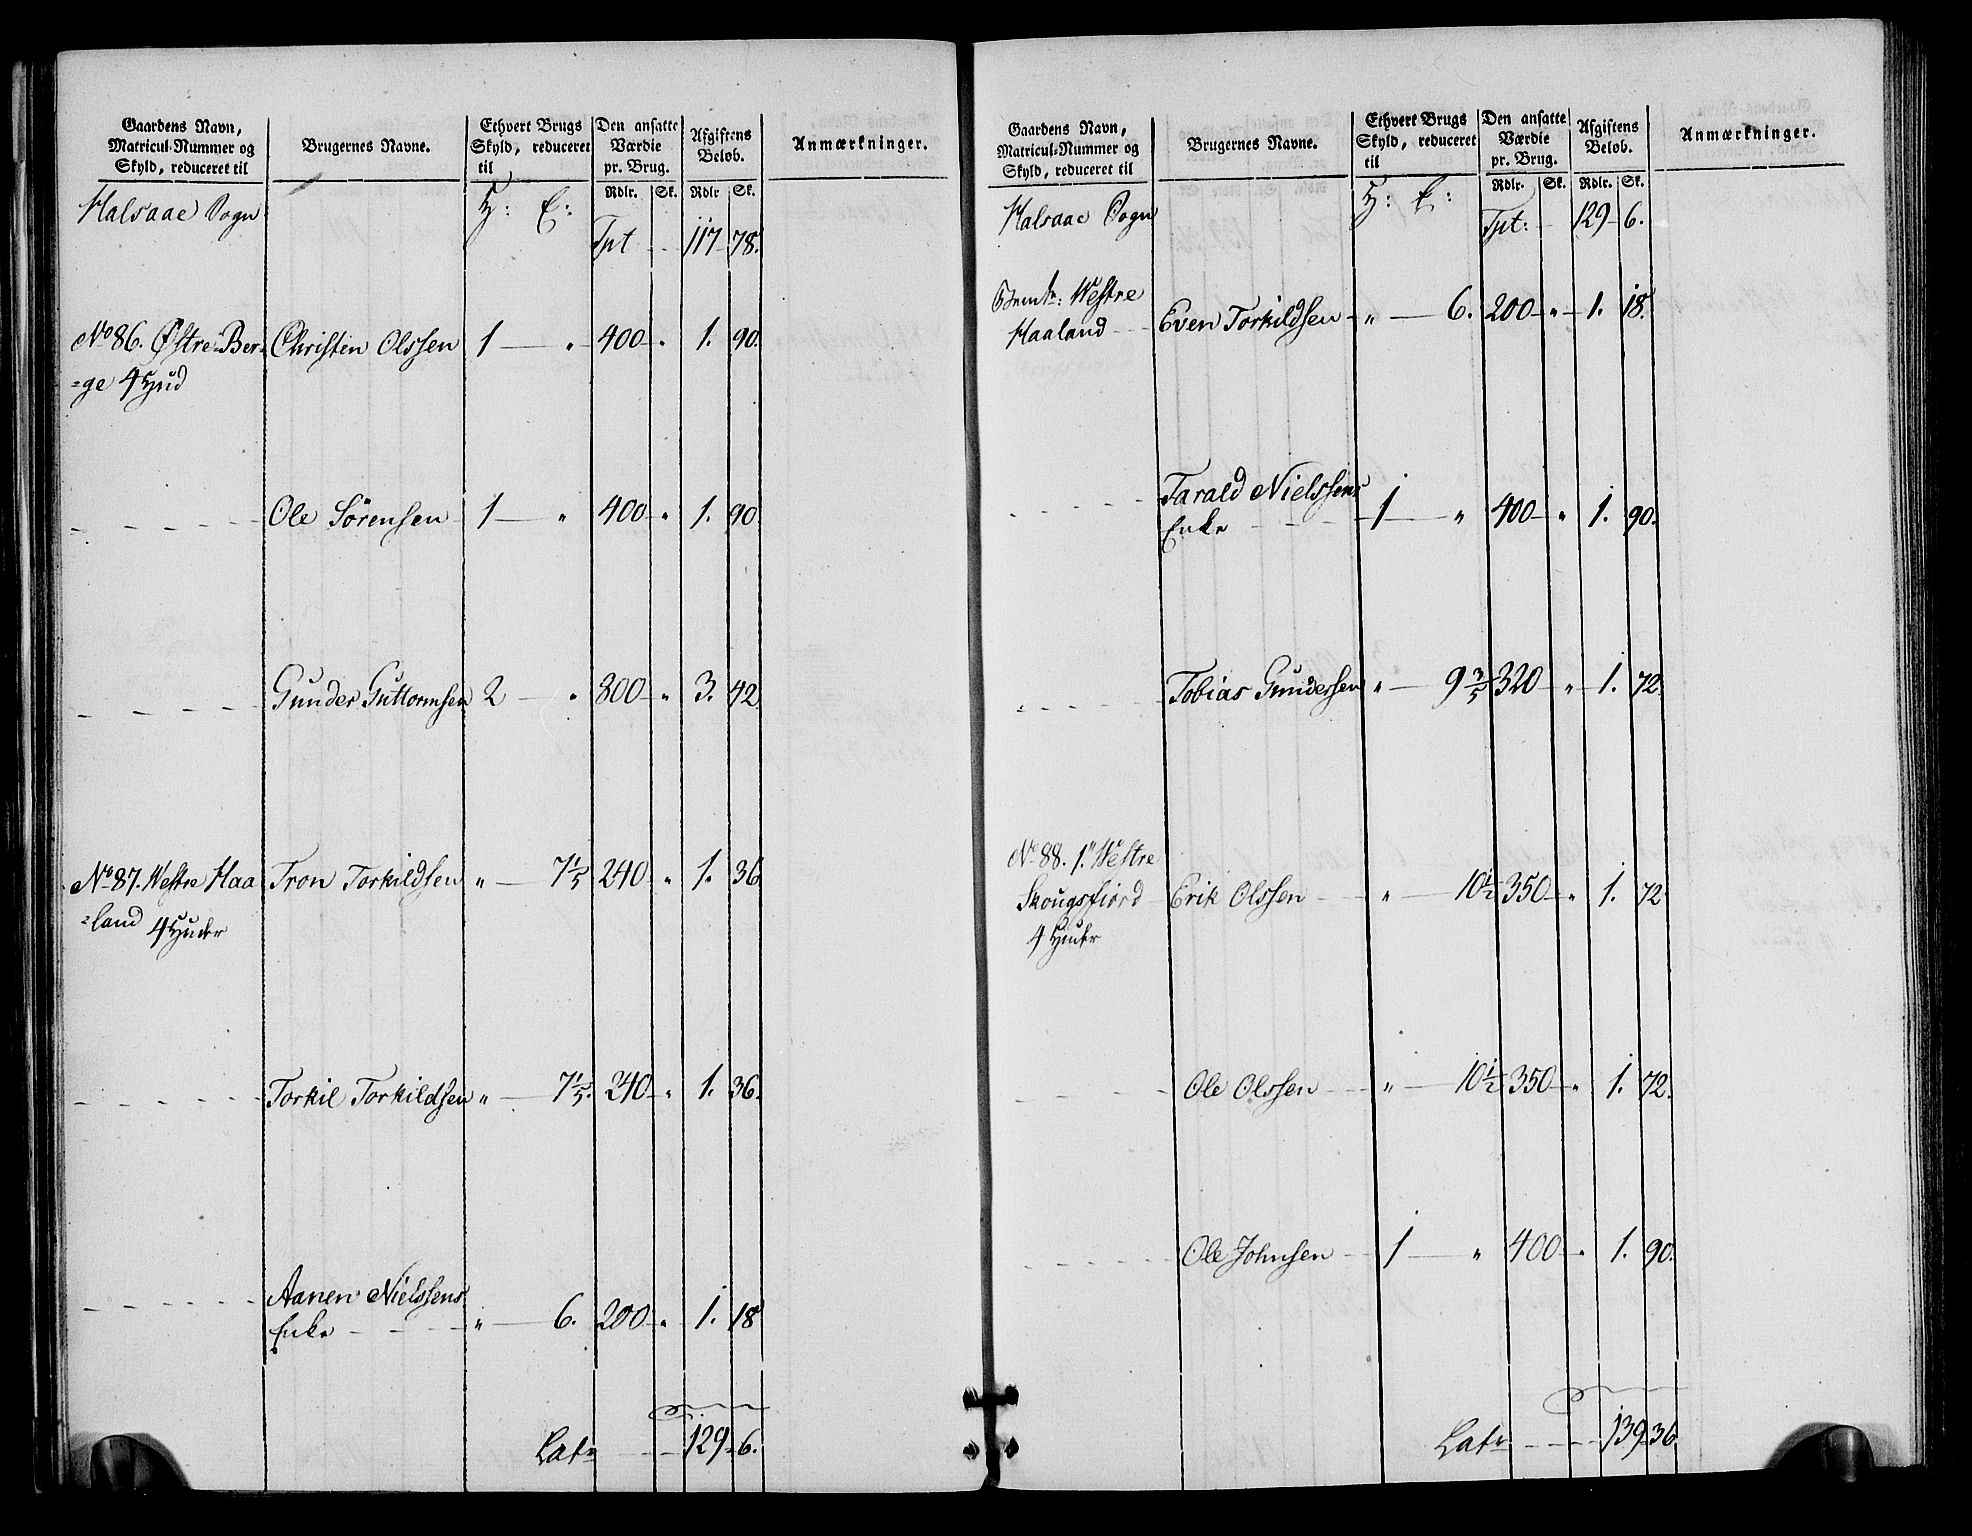 Gaardens Navn, Matricul-Nummer og Skyld, reduceret til | Brugernes Navne. | Ethvert Brugs Skyld, reduceret til | Den ansatte Værdie pr. Brug. | Afgiftens Beløb. | Anmærkninger.
Rdlr. | Sk. | Rdlr | Sk.
Halsaae Sogn | H: E:
Tpt - - 117 - 78.
No 86. Østre Ber= | Christen Olssen | 1 — " | 400 — " | 1. 90.
=ge 4 Hud
Ole Sørensen | 1 — " | 400 — " | 1. 90
Gunder Guttormsen | 2 — " | 800 — " | 3. 42
No 87. Westre Haa | Tron Torkildsen | " — 7 1/5 | 240 " | 1. 36
=land 4 Huder
Torkil Torkildsen | " — 7 1/5. | 240 — " | 1. 36.
Aanen Nielssens
Enke - - - | " — 6. | 200 — " | 1. 18
Latr - - 129 - 6.
Gaardens Navn, Matricul-Nummer og Skyld, reduceret til | Brugernes Navne. | Ethvert Brugs Skyld, reduceret til | Den ansatte Værdie pr. Brug. | Afgiftens Beløb. | Anmærkninger.
Rdlr. | Sk. | Rdlr. | Sk.
Halsaae Sogn | H: E:
Tpt: - 129 - 6.
Westre
Haaland - - | Even Torkildsen | " — 6. | 200 — " | 1. 18.
Tarald Nielssens
Enke - - - | 1 — " | 400 — " | 1. 90.
Tobias Gundersen | " — 9 3/5 | 320 — " | 1. 72
No 88. 1." Westre
Skougsfiord | Erik Olssen | " — 10 1/2 | 350 — " | 1. 72
4 Huder
Ole Olssen | " — 10 1/2 | 350 — " | 1. 72.
Ole Johnsen | 1 — " | 400 — " | 1. 90.
Latr - - - 139 - 36